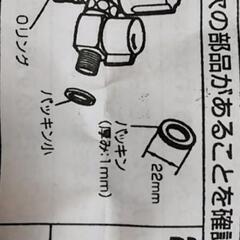 ヤの部品があることを確認
Oリング
パッキン小
パッキン
(厚み:1mm)
22mm